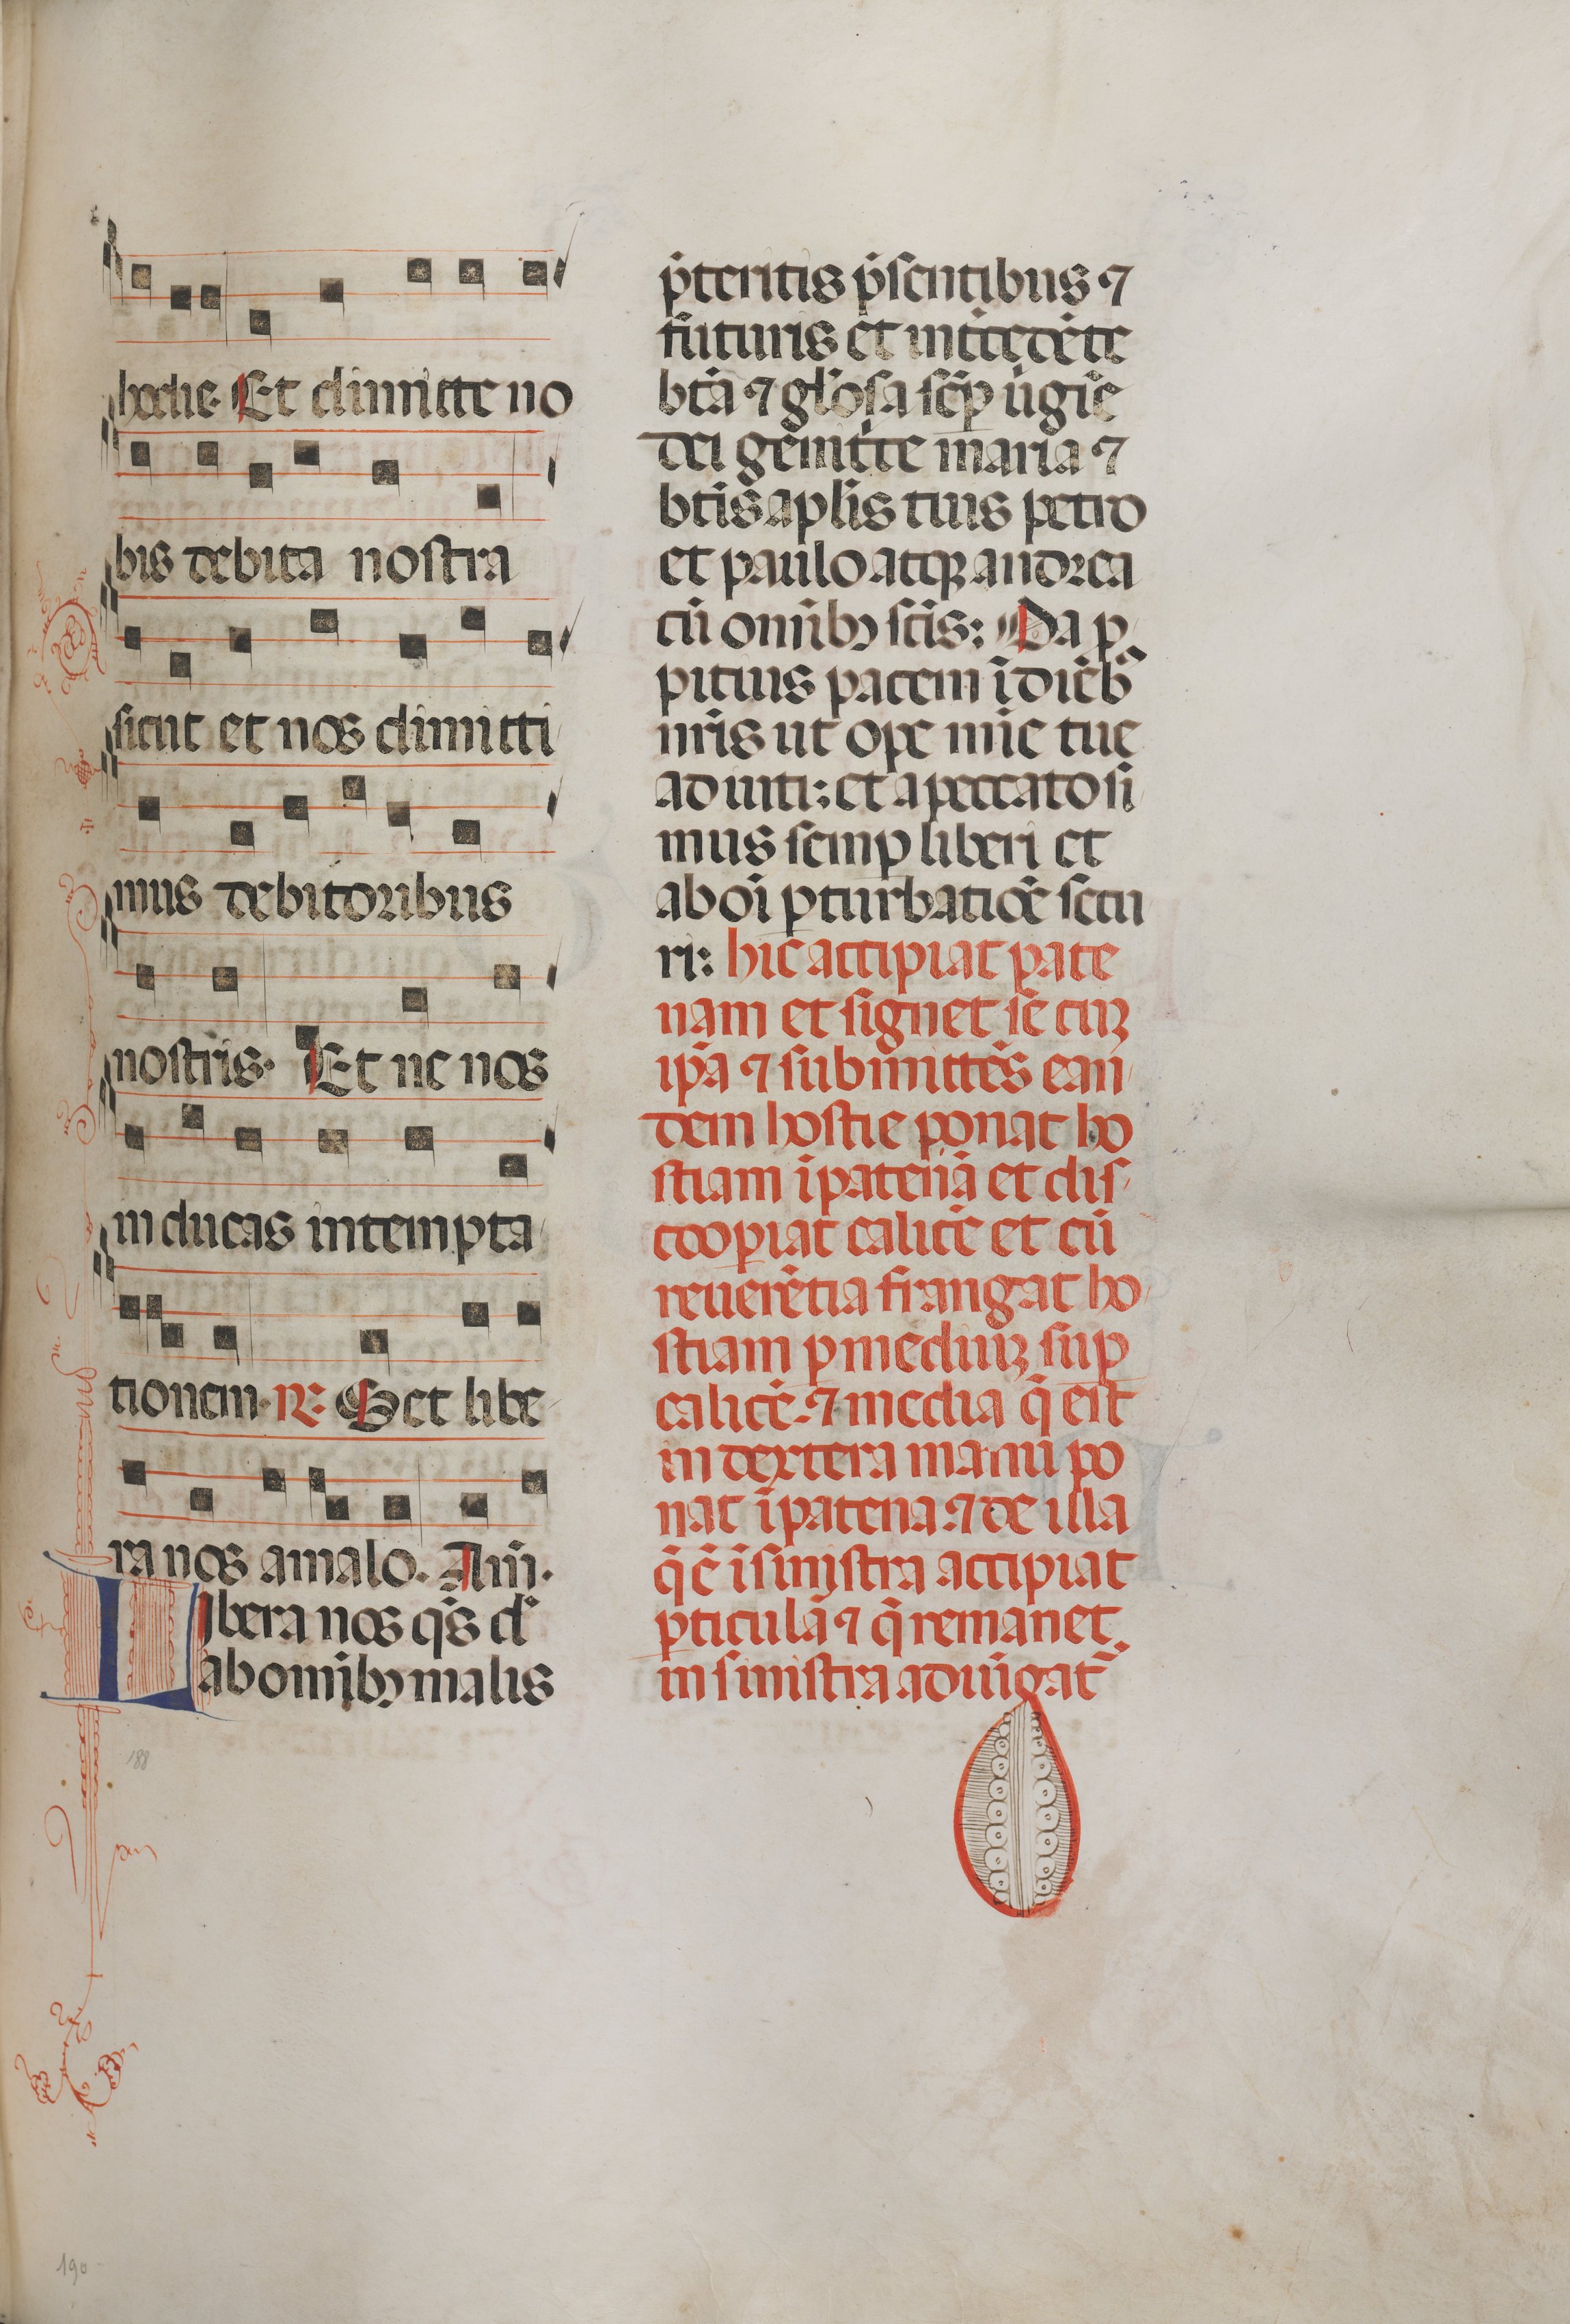 hodie. Et dimitte no
bis debita nostra
sicut et nos dimitti
mus debitoribus
nostris. Et ne nos
inducas intempta
tionem. R. Set libe
ra nos amalo. Am̄.
Libera nos q̄s d̄
abomībꝫ malis
p̄teritis p̄sentibus ⁊
futuris et int̄cedēte
bt̄a ⁊ gl̓osa sēꝑ ūgīe
dei genit̄ce maria ⁊
bt̄is apl̄is tuis petro
et paulo atqꝫ andrea
cū omībꝫ sc̄is: Da ꝓ
pitius pacem ī dieb᷒
nr̄is ut ope mīe tue
adiuti: et apeccato si
mus semꝑ liberi et
ab oī ꝑturbatiōe secu
ri: hic accipiat pate
nam et signet sē cuꝫ
ip̄a ⁊ submittēs ean
dem hostie ponat ho
stiam ī patenā et dis
cooꝑiat calicē et cū
reuerētia frangat ho
stiam ꝑ mediuꝫ suꝑ
calicē. ⁊ media q̄ est
in dextera manu po
nat ī patena: ⁊ de illa
q̄ ē ī sinistra accipiat
ꝑticulā ⁊ q̄ remanet
in sinistra adiūgat᷑
188
190